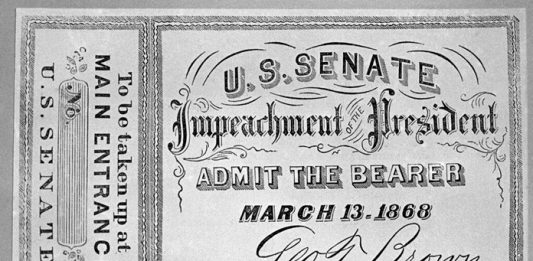 To be taken up at
MAIN ENTRANC
No.
U.S. SENATE
U.S. SENATE
Impeachment OF THE President
ADMIT THE BEARER
MARCH 13-1868
Geo T. Brown